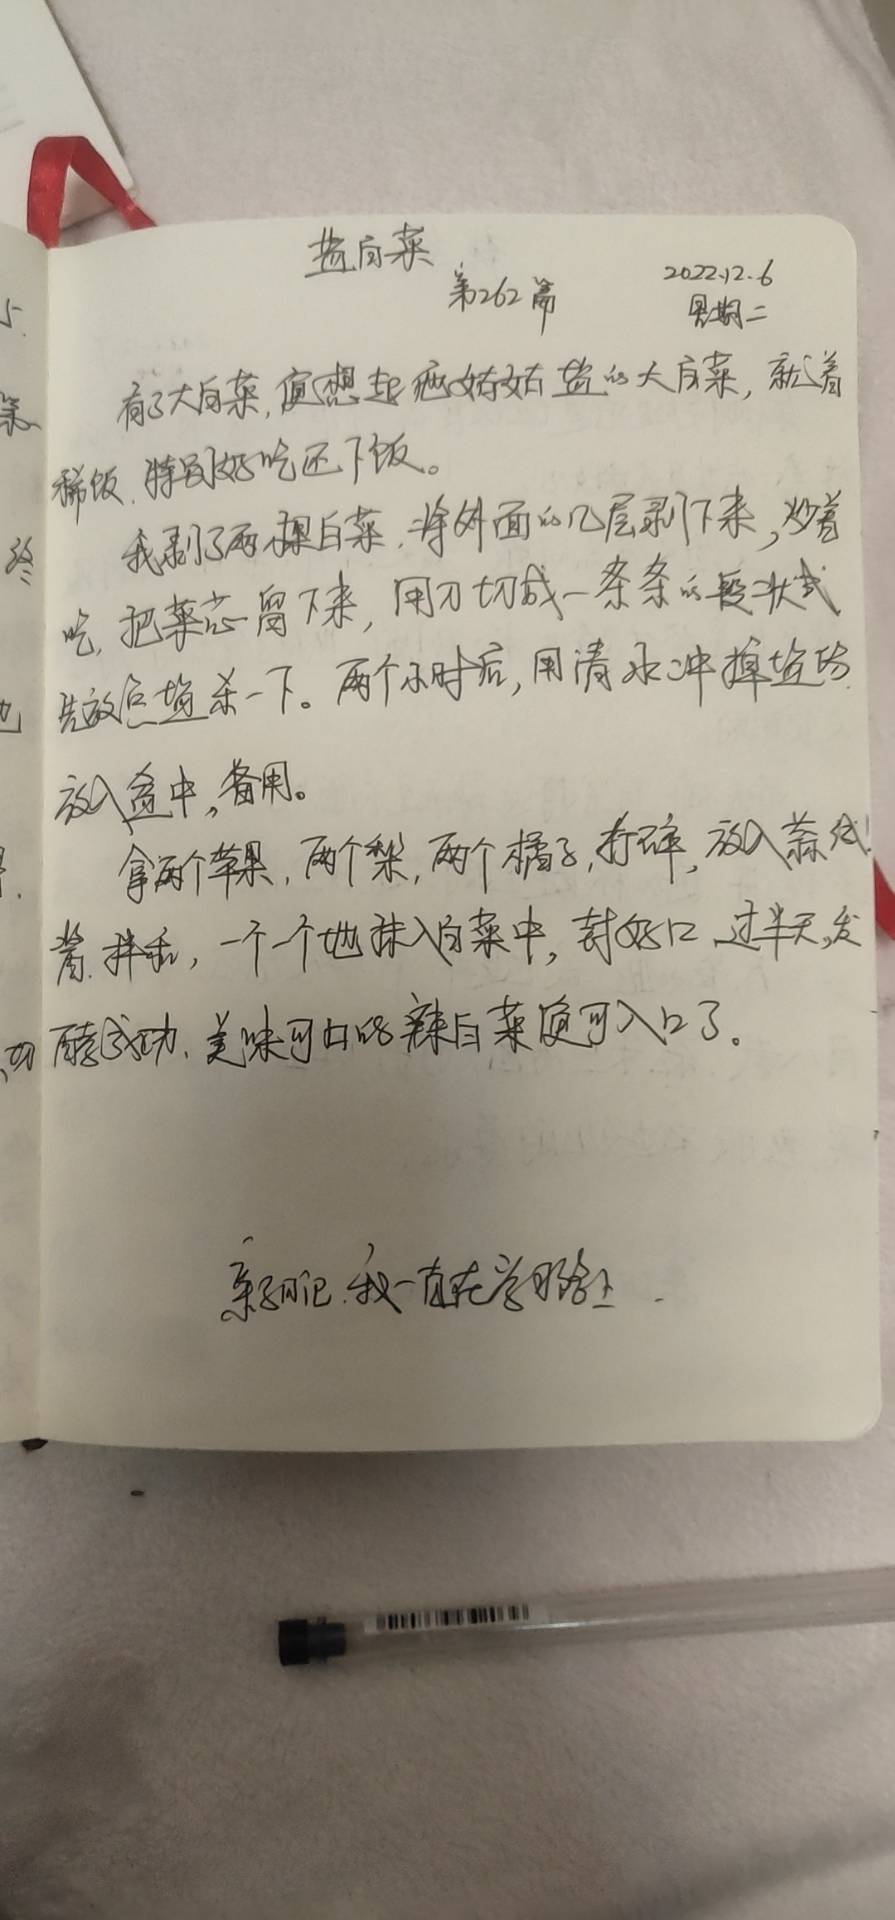 盐白菜
第262篇
2022.12.6
星期二
有了大白菜,便想起姑姑盐的大白菜,就着
稀饭,特别好吃还下饭。
我剥了两棵白菜,将外面的几层剥下来,炒着
吃,把菜芯留下来,用刀切成一条条的段状式
先放点盐杀一下。两个小时后,用清水冲掉盐
放入盆中,备用。
拿两个苹果,两个梨,两个橘子,打碎,放入蒜
酱,拌和,一个一个地抹入白菜中,封好口,过半天,发
酵成功,美味可口的辣白菜便可入口了。
亲子日记,我一直在学习路上.